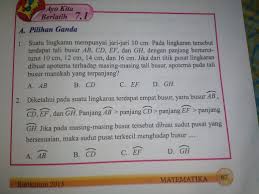 Ayo Kita
Berlatih 7.1
A. Pilihan Ganda
1. Suatu lingkaran mempunyai jari-jari 10 cm. Pada lingkaran tersebut
terdapat tali busur AB, CD, EF, dan GH, dengan panjang berturut-
turut 10 cm, 12 cm, 14 cm, dan 16 cm. Jika dari titik pusat lingkaran
dibuat apotema terhadap masing-masing tali busur, apotema pada tali
busur manakah yang terpanjang?
A. AB B. CD C. EF D. GH
2. Diketahui pada suatu lingkaran terdapat empat busur, yaitu busur AB,
CD, EF, dan GH. Panjang AB > panjang CD > panjang EF > panjang
GH. Jika pada masing-masing busur tersebut dibuat sudut pusat yang
bersesuaian, maka sudut pusat terkecil menghadap busur ....
A. AB B. CD C. EF D. GH
Kurikulum 2013 MATEMATIKA 67